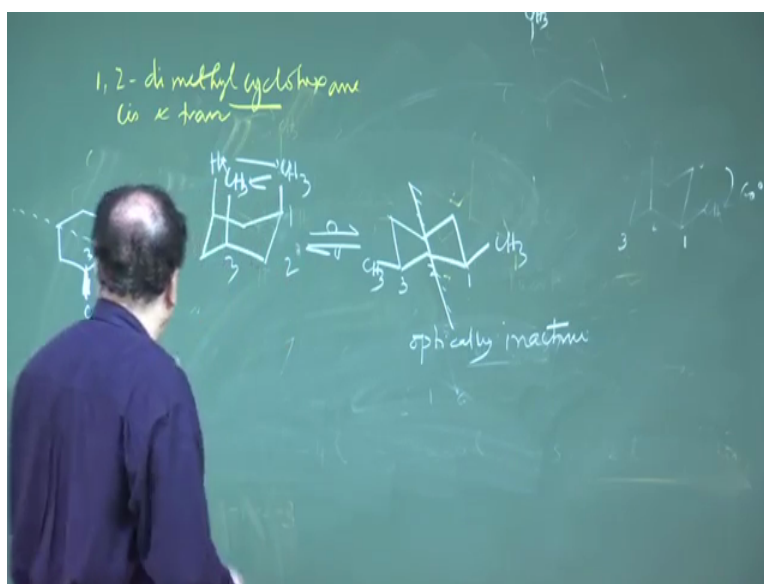 CH3
1,2-dimethyl cyclohexane
cis & trans
H CH3 CH3
1
2
3
CH3 3 2 1 CH3
optically inactive
3 1 60°